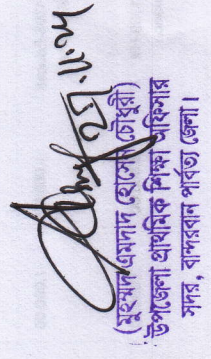 ২১.১১.০৮
(মুহম্মদ এমদাদ হোসেন চৌধুরী)
উপজেলা প্রাথমিক শিক্ষা অফিসার
সদর, বান্দরবান পার্বত্য জেলা।